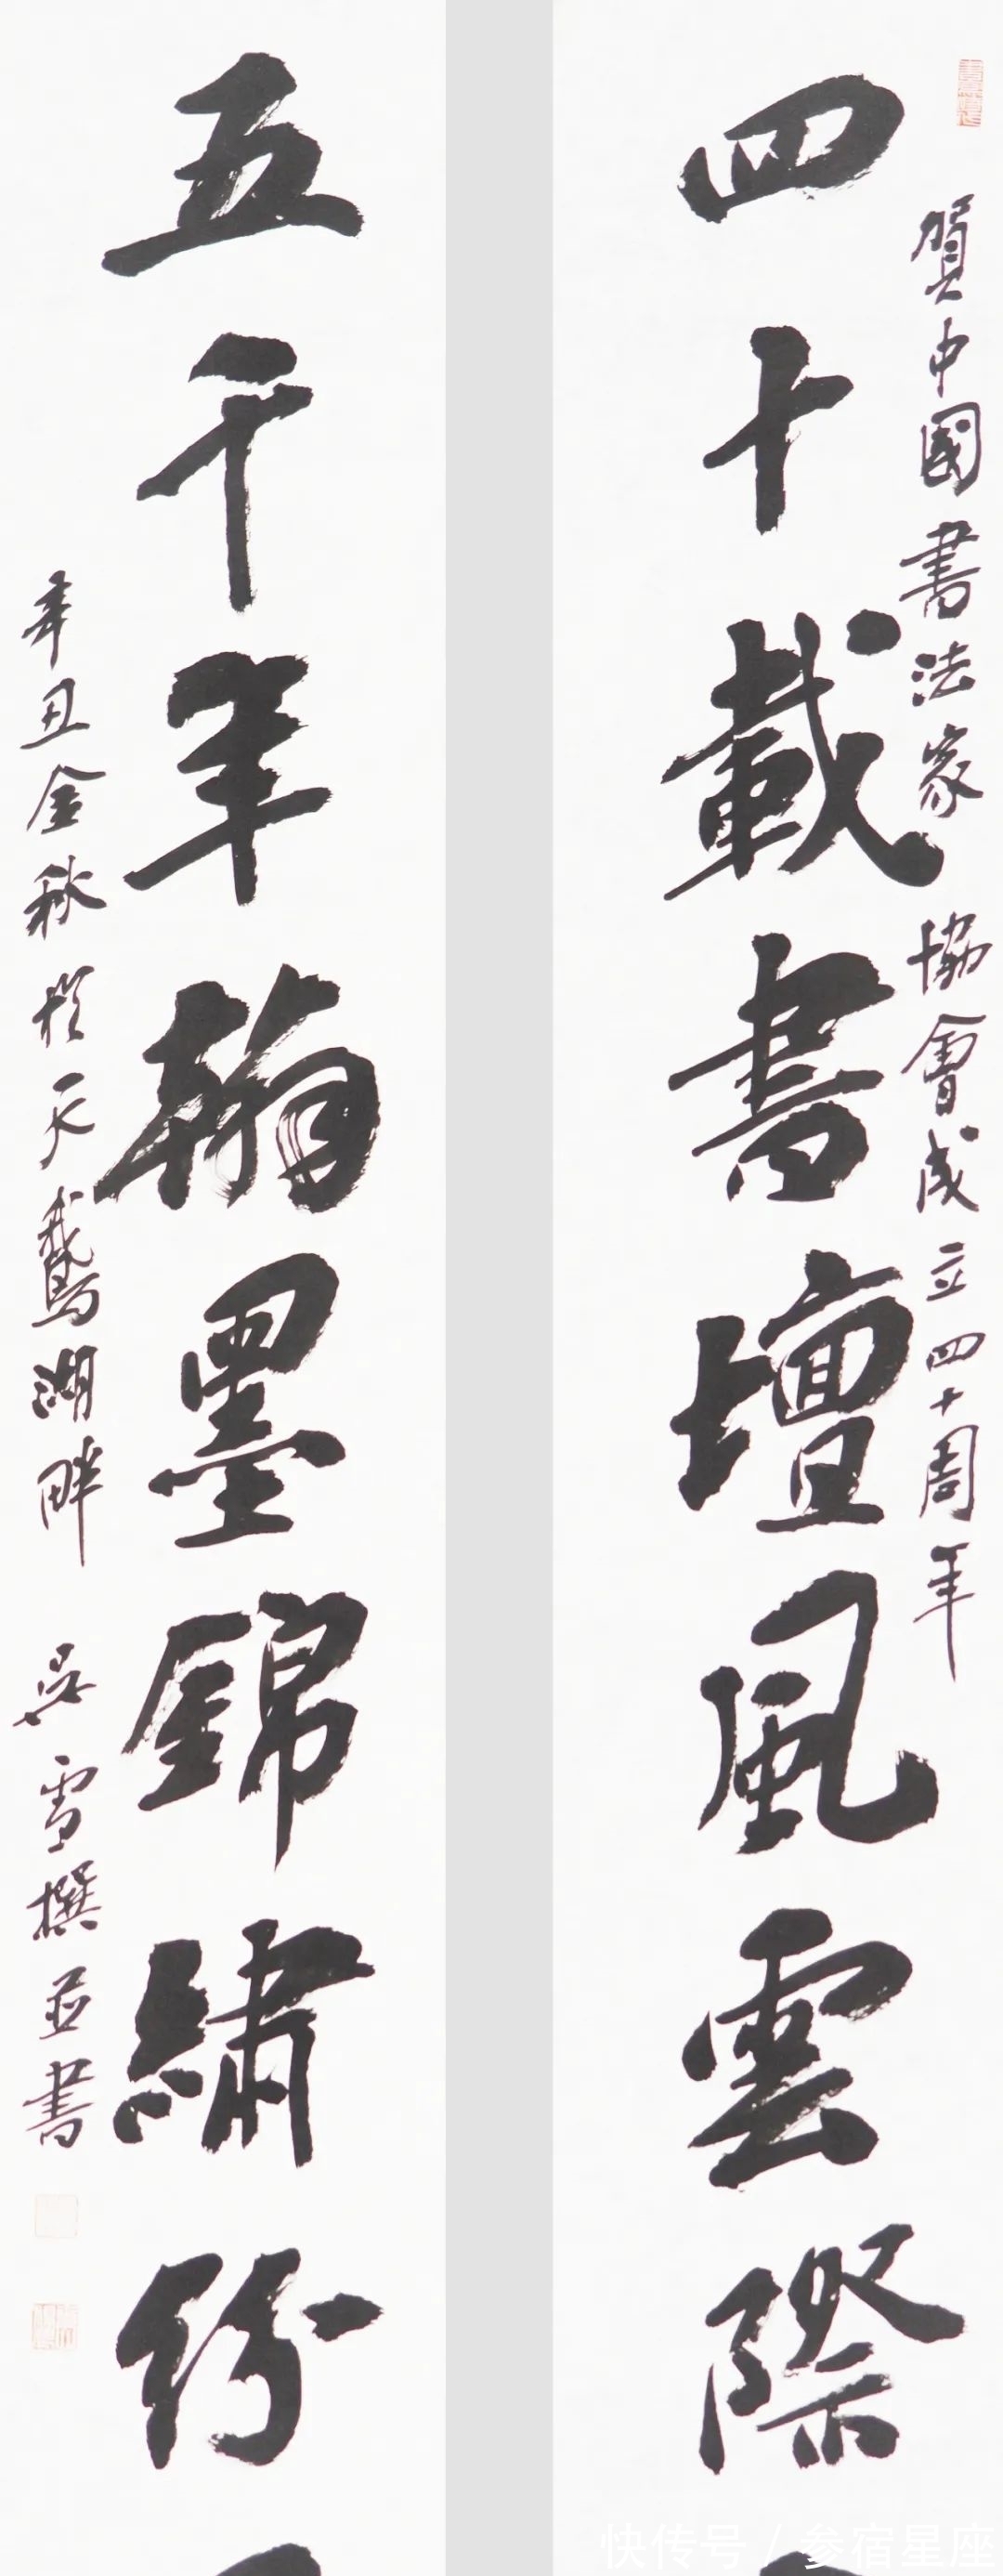 賀中國書法家協會成立四十周年
四十載書壇風雲際
五千年翰墨錦繡紛
辛丑金秋於天鵝湖畔 吳雪撰並書
快传号 / 参宿星座